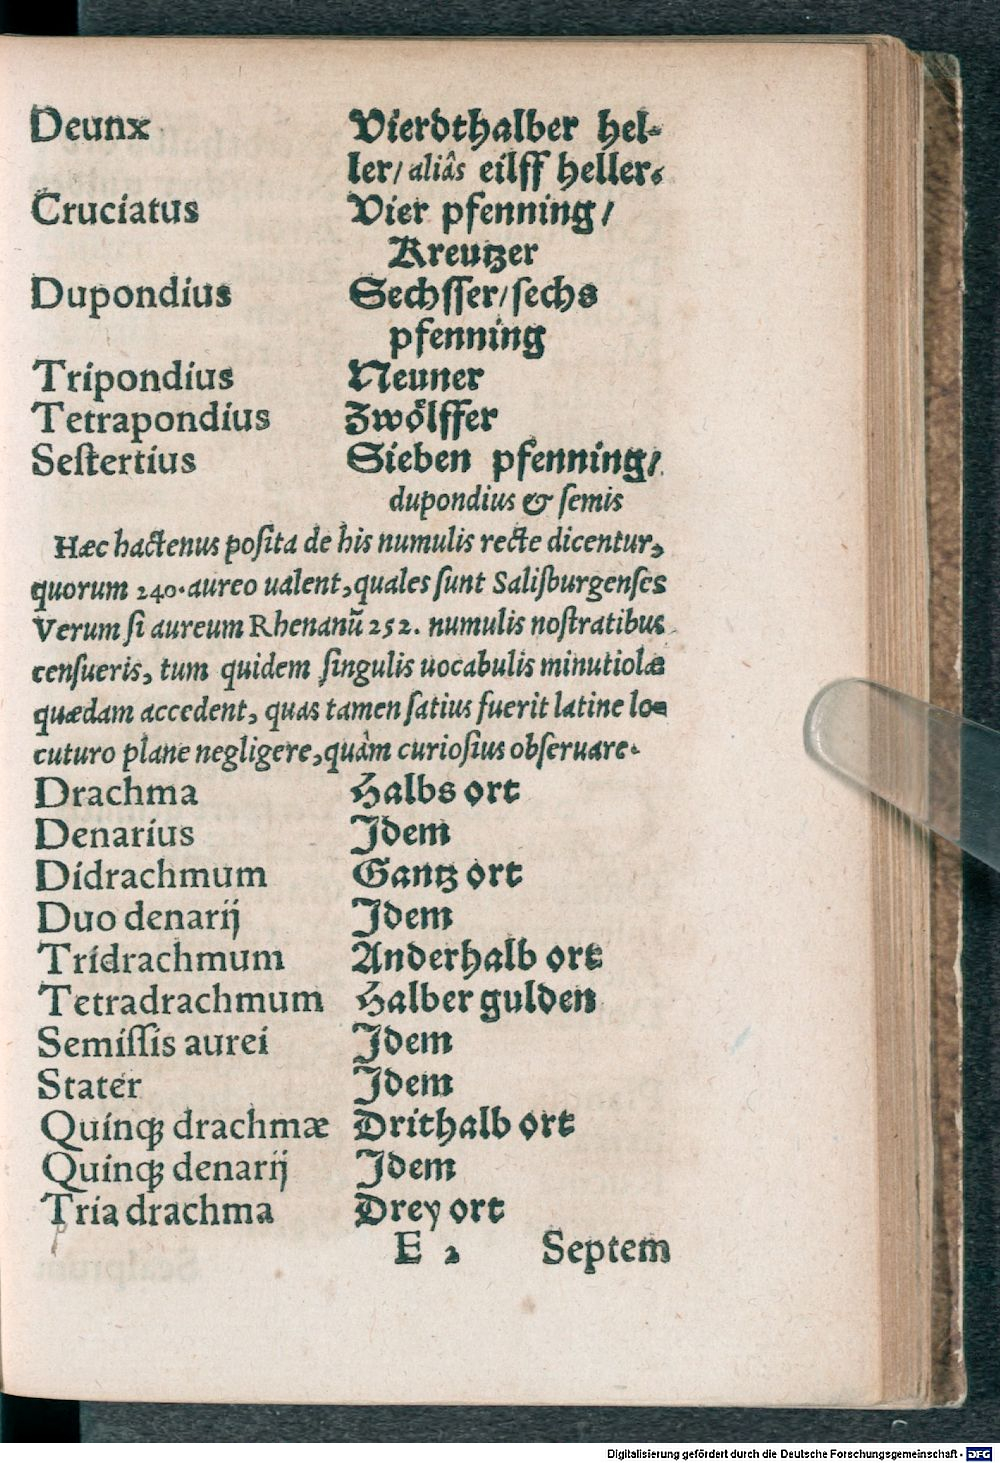 Deunx Vierdthalber hel-
ler/ aliâs eilff heller.
Cruciatus Vier pfenning/
Kreutzer
Dupondius Sechsser/sechs
pfenning
Tripondius Neuner
Tetrapondius Zwölffer
Sestertius Sieben pfenning/
dupondius & semis
Hæc hactenus posita de his numulis recte dicentur,
quorum 240. aureo ualent, quales sunt Salisburgenses
Verum si aureum Rhenanũ 252. numulis nostratibus
censueris, tum quidem singulis uocabulis minutiolæ
quædam accedent, quas tamen satius fuerit latine lo-
cuturo plane negligere, quàm curiosius obseruare.
Drachma Halbs ort
Denarius Idem
Didrachmum Gantz ort
Duo denarij Idem
Tridrachmum Anderhalb ort
Tetradrachmum Halber gulden
Semissis aurei Idem
Stater Idem
Quinqꝫ drachmæ Drithalb ort
Quinqꝫ denarij Idem
Tria drachma Drey ort
E 2 Septem
Digitalisierung gefördert durch die Deutsche Forschungsgemeinschaft - DFG